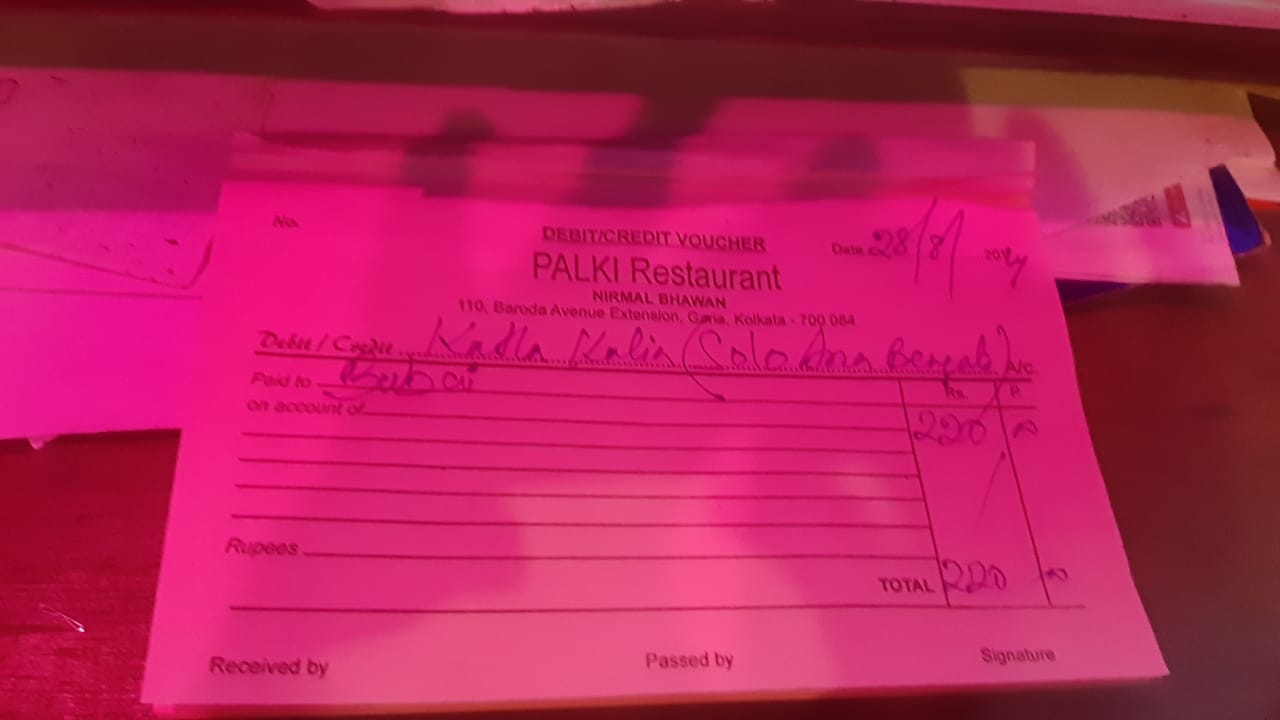 No.
DEBIT/CREDIT VOUCHER
Date 28/8/ 2024
PALKI Restaurant
NIRMAL BHAWAN
110, Baroda Avenue Extension, Garia, Kolkata - 700 084
Debit / Credit Katla Kalia (Solo Ana Bengali) A/c.
Paid to Bubai
Rs. P.
on account of
220 00
Rupees
TOTAL 220 00
Received by Passed by Signature